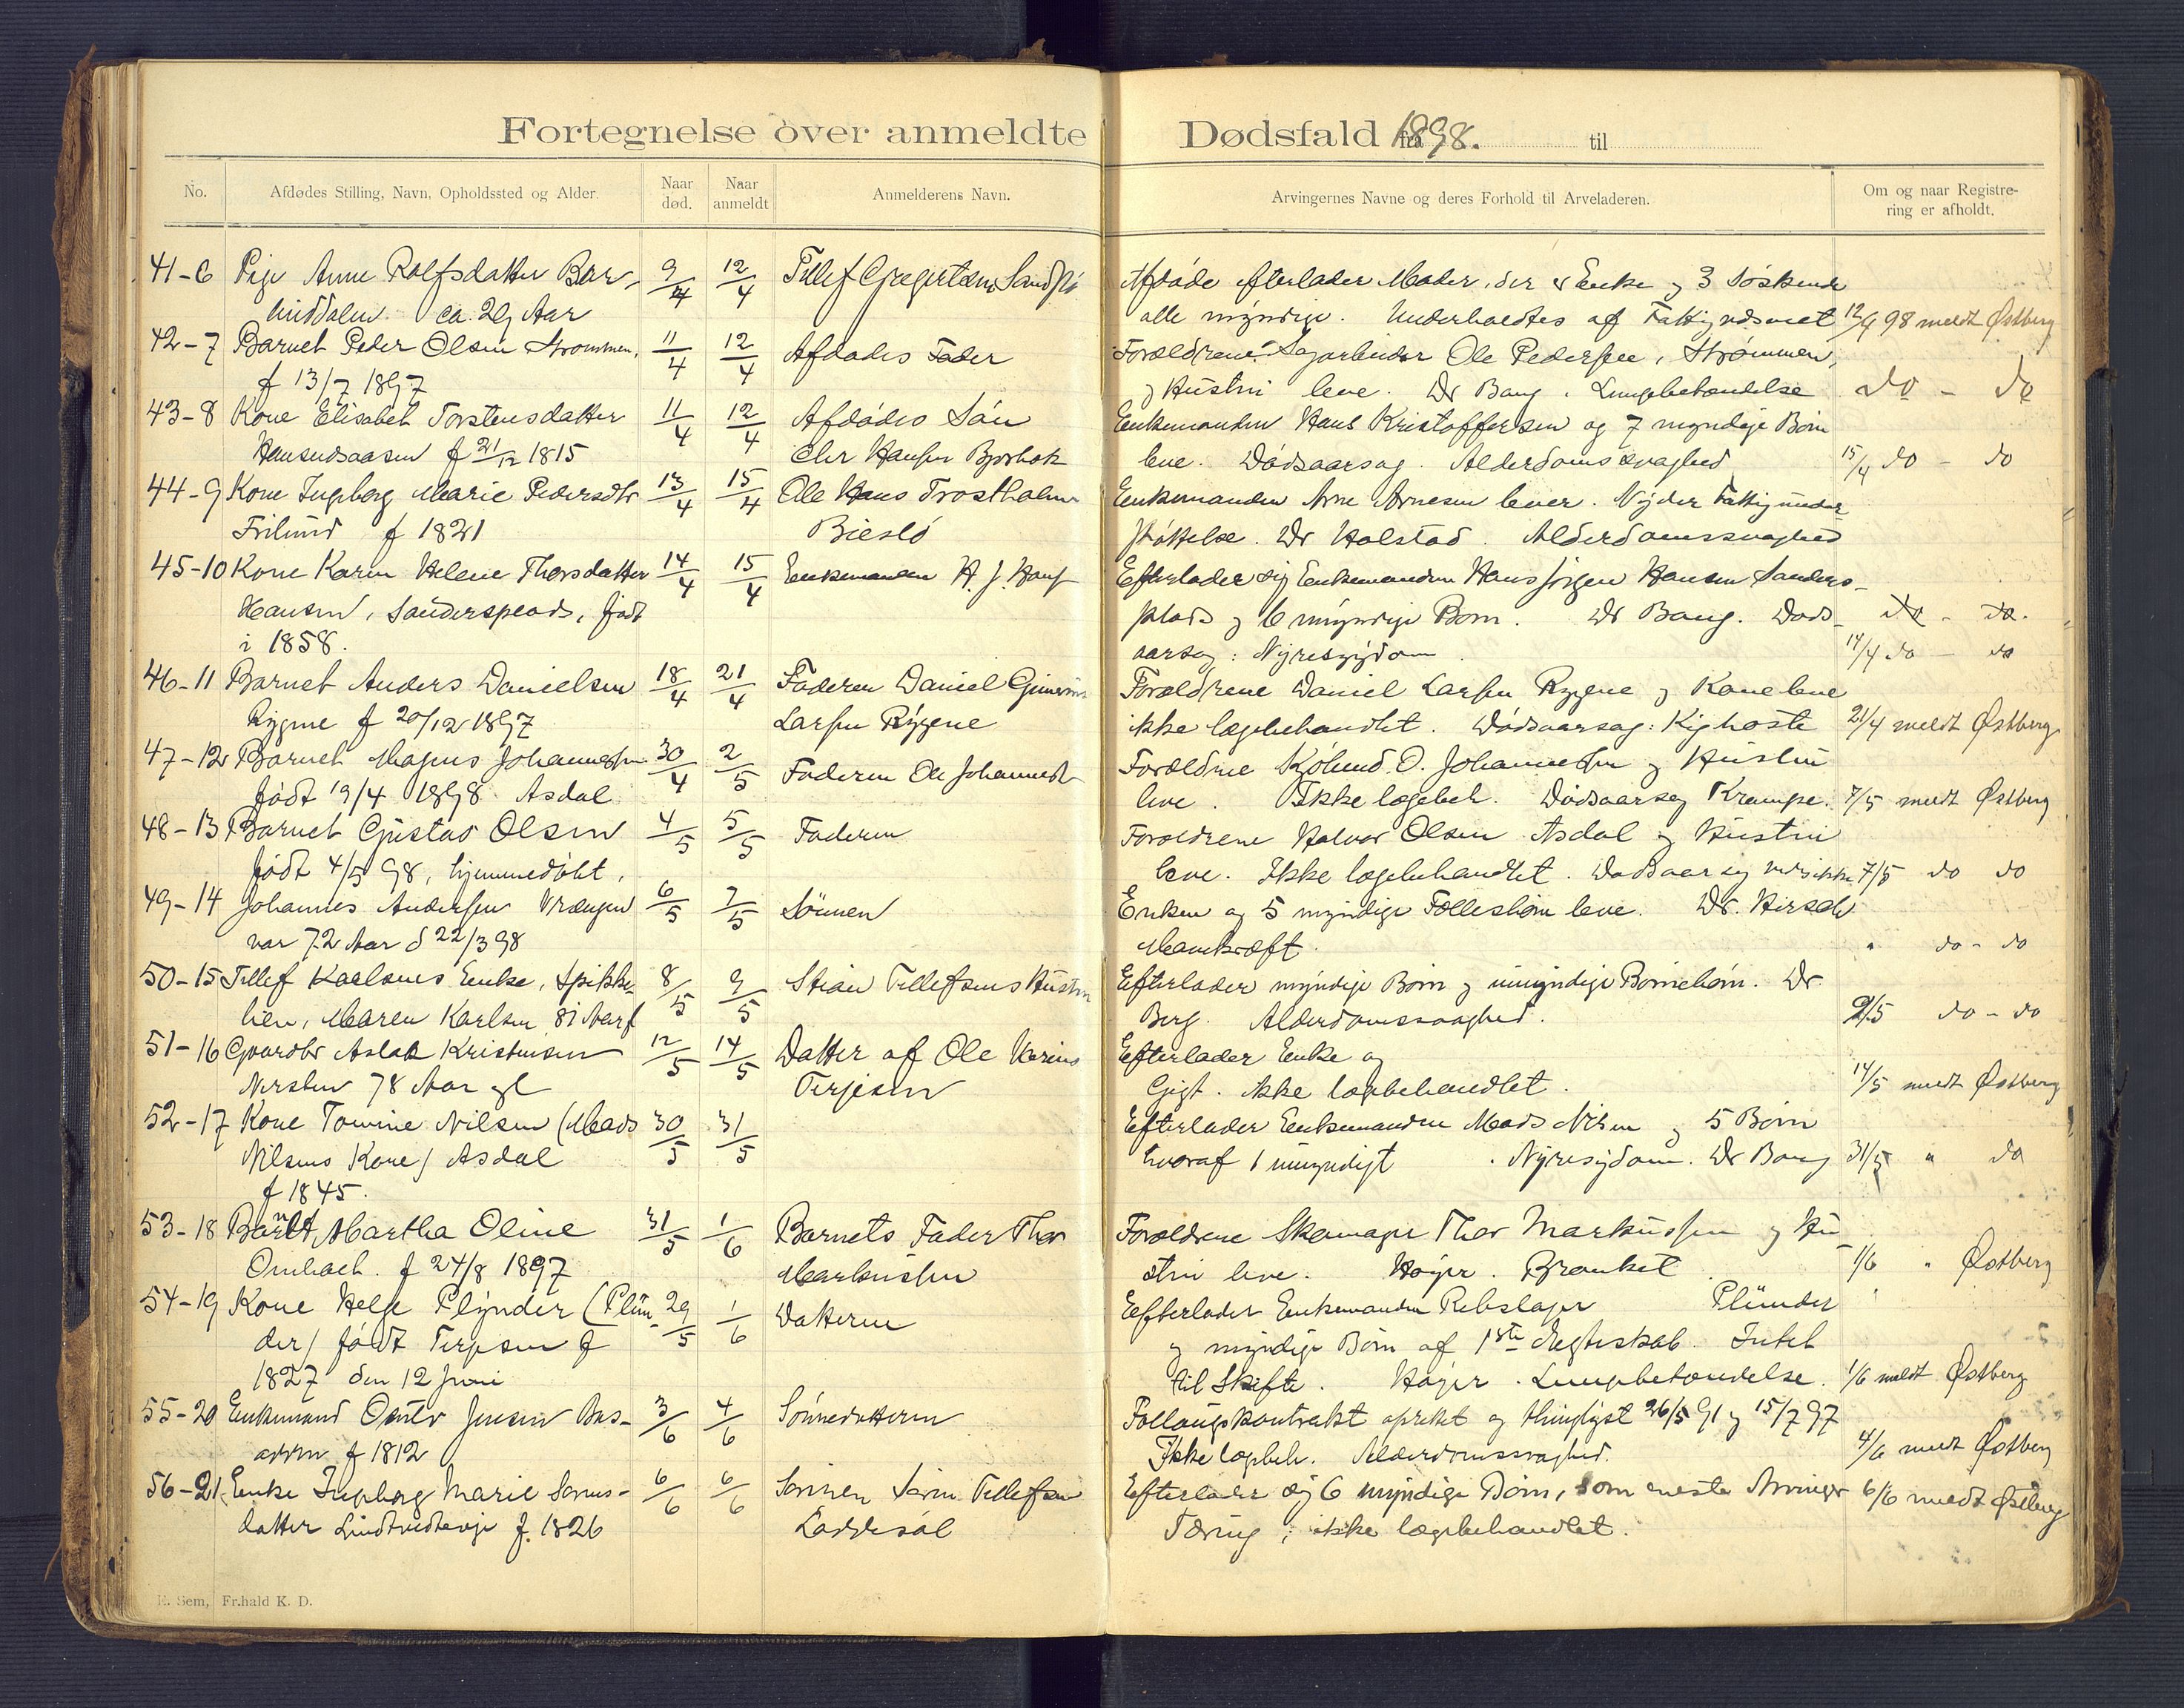 Fortegnelse over anmeldte Dødsfald 1898. fra til
No. Afdødes Stilling, Navn, Opholdssted og Alder. Naar død. Naar anmeldt Anmelderens Navn. Arvingernes Navne og deres Forhold til Arveladeren. Om og naar Registrering er afholdt.
41-6 Pige Anne Rolfsdatter 9/4 12/4 Tellef Afdøde efterlader Moder, der er Enke og 3 Søskende
ca. 29 Aar alle myndige. Underholdtes af 12/4 98 meldt Østberg
42-7 Barnet Peder Olsen Strømmen, 11/4 12/4 Afdødes Fader Forældrene Sagarbeider Ole Pedersen, Strømmen,
f 13/7 1897 og Hustru leve. Dr Bang. Lungebetændelse do - do
43-8 Kone Elisabet Torstensdatter 11/4 12/4 Afdødes Søn Enkemanden Hans Kristoffersen og 7 myndige Børn
f 21/12 1815 Chr Hansen leve. Dødsaarsag. Alderdomssvaghed 15/4 do - do
44-9 Kone Ingeborg Marie Pedersdtr 13/4 15/4 Ole Hans Trostholmen Enkemanden Arne Arnesen lever. Nyder Fattigunder
Frilund f 1821 støttelse. Dr Holstad. Alderdomssvaghed
45-10 Kone Karen Helene Thorsdatter 14/4 15/4 Enkemanden H. J. Hans Efterlader sig Enkemanden Hans Jørgen Hansen Sanders-
Hansen, Sandersplads, født plads og 6 myndige Børn. Dr Bang. Døds- do - do.
i 1858. aarsag: Nyresygdom do - do
46-11 Barnet Anders Danielsen 18/4 21/4 Faderen Daniel Forældrene Daniel Larsen Rygene og Kone leve
Rygene f 20/12 1897 Larsen Rygene ikke lægebehandlet. Dødsaarsag: Kighoste 21/4 meldt Østberg
47-12 Barnet Magnus Johannesen 30/4 2/5 Faderen Ole Johannesen Forældrene O. Johannesen og Hustru
født 19/4 1898 Asdal leve. Ikke lægebeh. Dødsaarsag Krampe. 7/5 meldt Østberg
48-13 Barnet Gustav Olsen 4/5 5/5 Faderen Forældrene Halvor Olsen Asdal og Hustru
født 4/5 98, hjemmedøbt, leve. Ikke lægebehandlet. Dødsaarsag vides ikke 7/5 do do
49-14 Johannes Andersen Vrængen 6/5 7/5 Sønnen Enken og 5 myndige Fællesbørn leve. Dr. Hirsch
var 72 Aar d 22/3 98 Mavekræft. " do - do
50-15 Tellef Karlsens Enke, Spikke- 8/5 9/5 Stian Tellefsens Hustru Efterlader myndige Børn og umyndige Børnebørn. Dr
lien, Maren Karlsen 81 Aar Berg. Alderdomssvaghed. 9/5 do - do
51-16 Gaardbr Aslak Kristensen 12/5 14/5 Datter af Ole Efterlader Enke og
78 Aar gl Terjesen Gigt. Ikke lægebehandlet. 14/5 meldt Østberg
52-17 Kone Tomine Nilsen (Mads 30/5 31/5 Efterlader Enkemanden Mads Nilsen og 5 Børn
Nilsens Kone) Asdal hvoraf 1 umyndigt. Nyresygdom. Dr Bang 31/5 " do
f 1845.
53-18 Barnet Martha Oline 31/5 1/6 Barnets Fader Thor Forældrene Skomager Thor Markussen og Hu-
f 24/8 1897 Markussen stru leve. Høyer. Bronket 1/6 " Østberg
54-19 Kone Helge Plynder (Plün- 29/5 1/6 Datteren Efterlader Enkemanden Rebslager Plünder
der) født Terjesen f og myndige Børn af 1ste Ægteskab. Intet
1827 den 12 Juni til Skifte. Høyer. Lungebetændelse. 1/6 meldt Østberg
55-20 Enkemand Jensen Bas- 3/6 4/6 Sønnedatteren oprettet og thinglyst 26/5 91 og 15/7 97
f 1812 Ikke lægebeh. Alderdomssvaghed. 4/6 meldt Østberg
56-21 Enke Ingeborg Marie Sørens- 6/6 6/6 Sønnen Søren Tellefsen Efterlader sig 6 myndige Børn, som eneste Arvinger 6/6 meldt Østberg
datter f. 1826 Løddesøl Tæring; ikke lægebehandlet.
E. Sem, Fr.hald K. D.